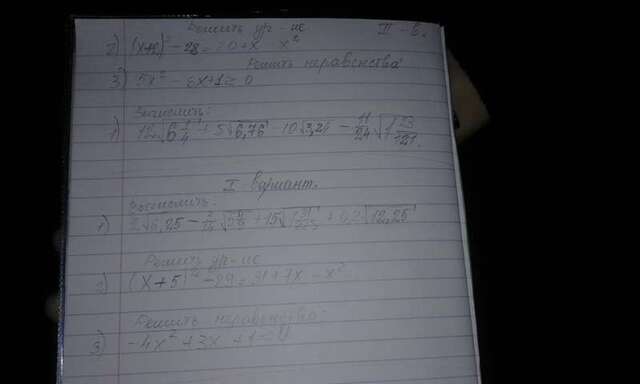 Решить ур-ие II-в.
2) (x+2)² - 28 = 20 + x x²
Решить неравенства
3) 5x² - 6x + 1 ≥ 0
Вычислить:
1) 12√6 1/4 + 5√6,76 - 10√3,24 - 11/24 √1 23/121.
I вариант.
Вычислить:
1) √6,25 - + 15√ + 0,2√12,25
Решить ур-ие
2) (x+5)² - 29 = 31 + 7x - x²
Решить неравенства:
3) -4x² + 3x + 1